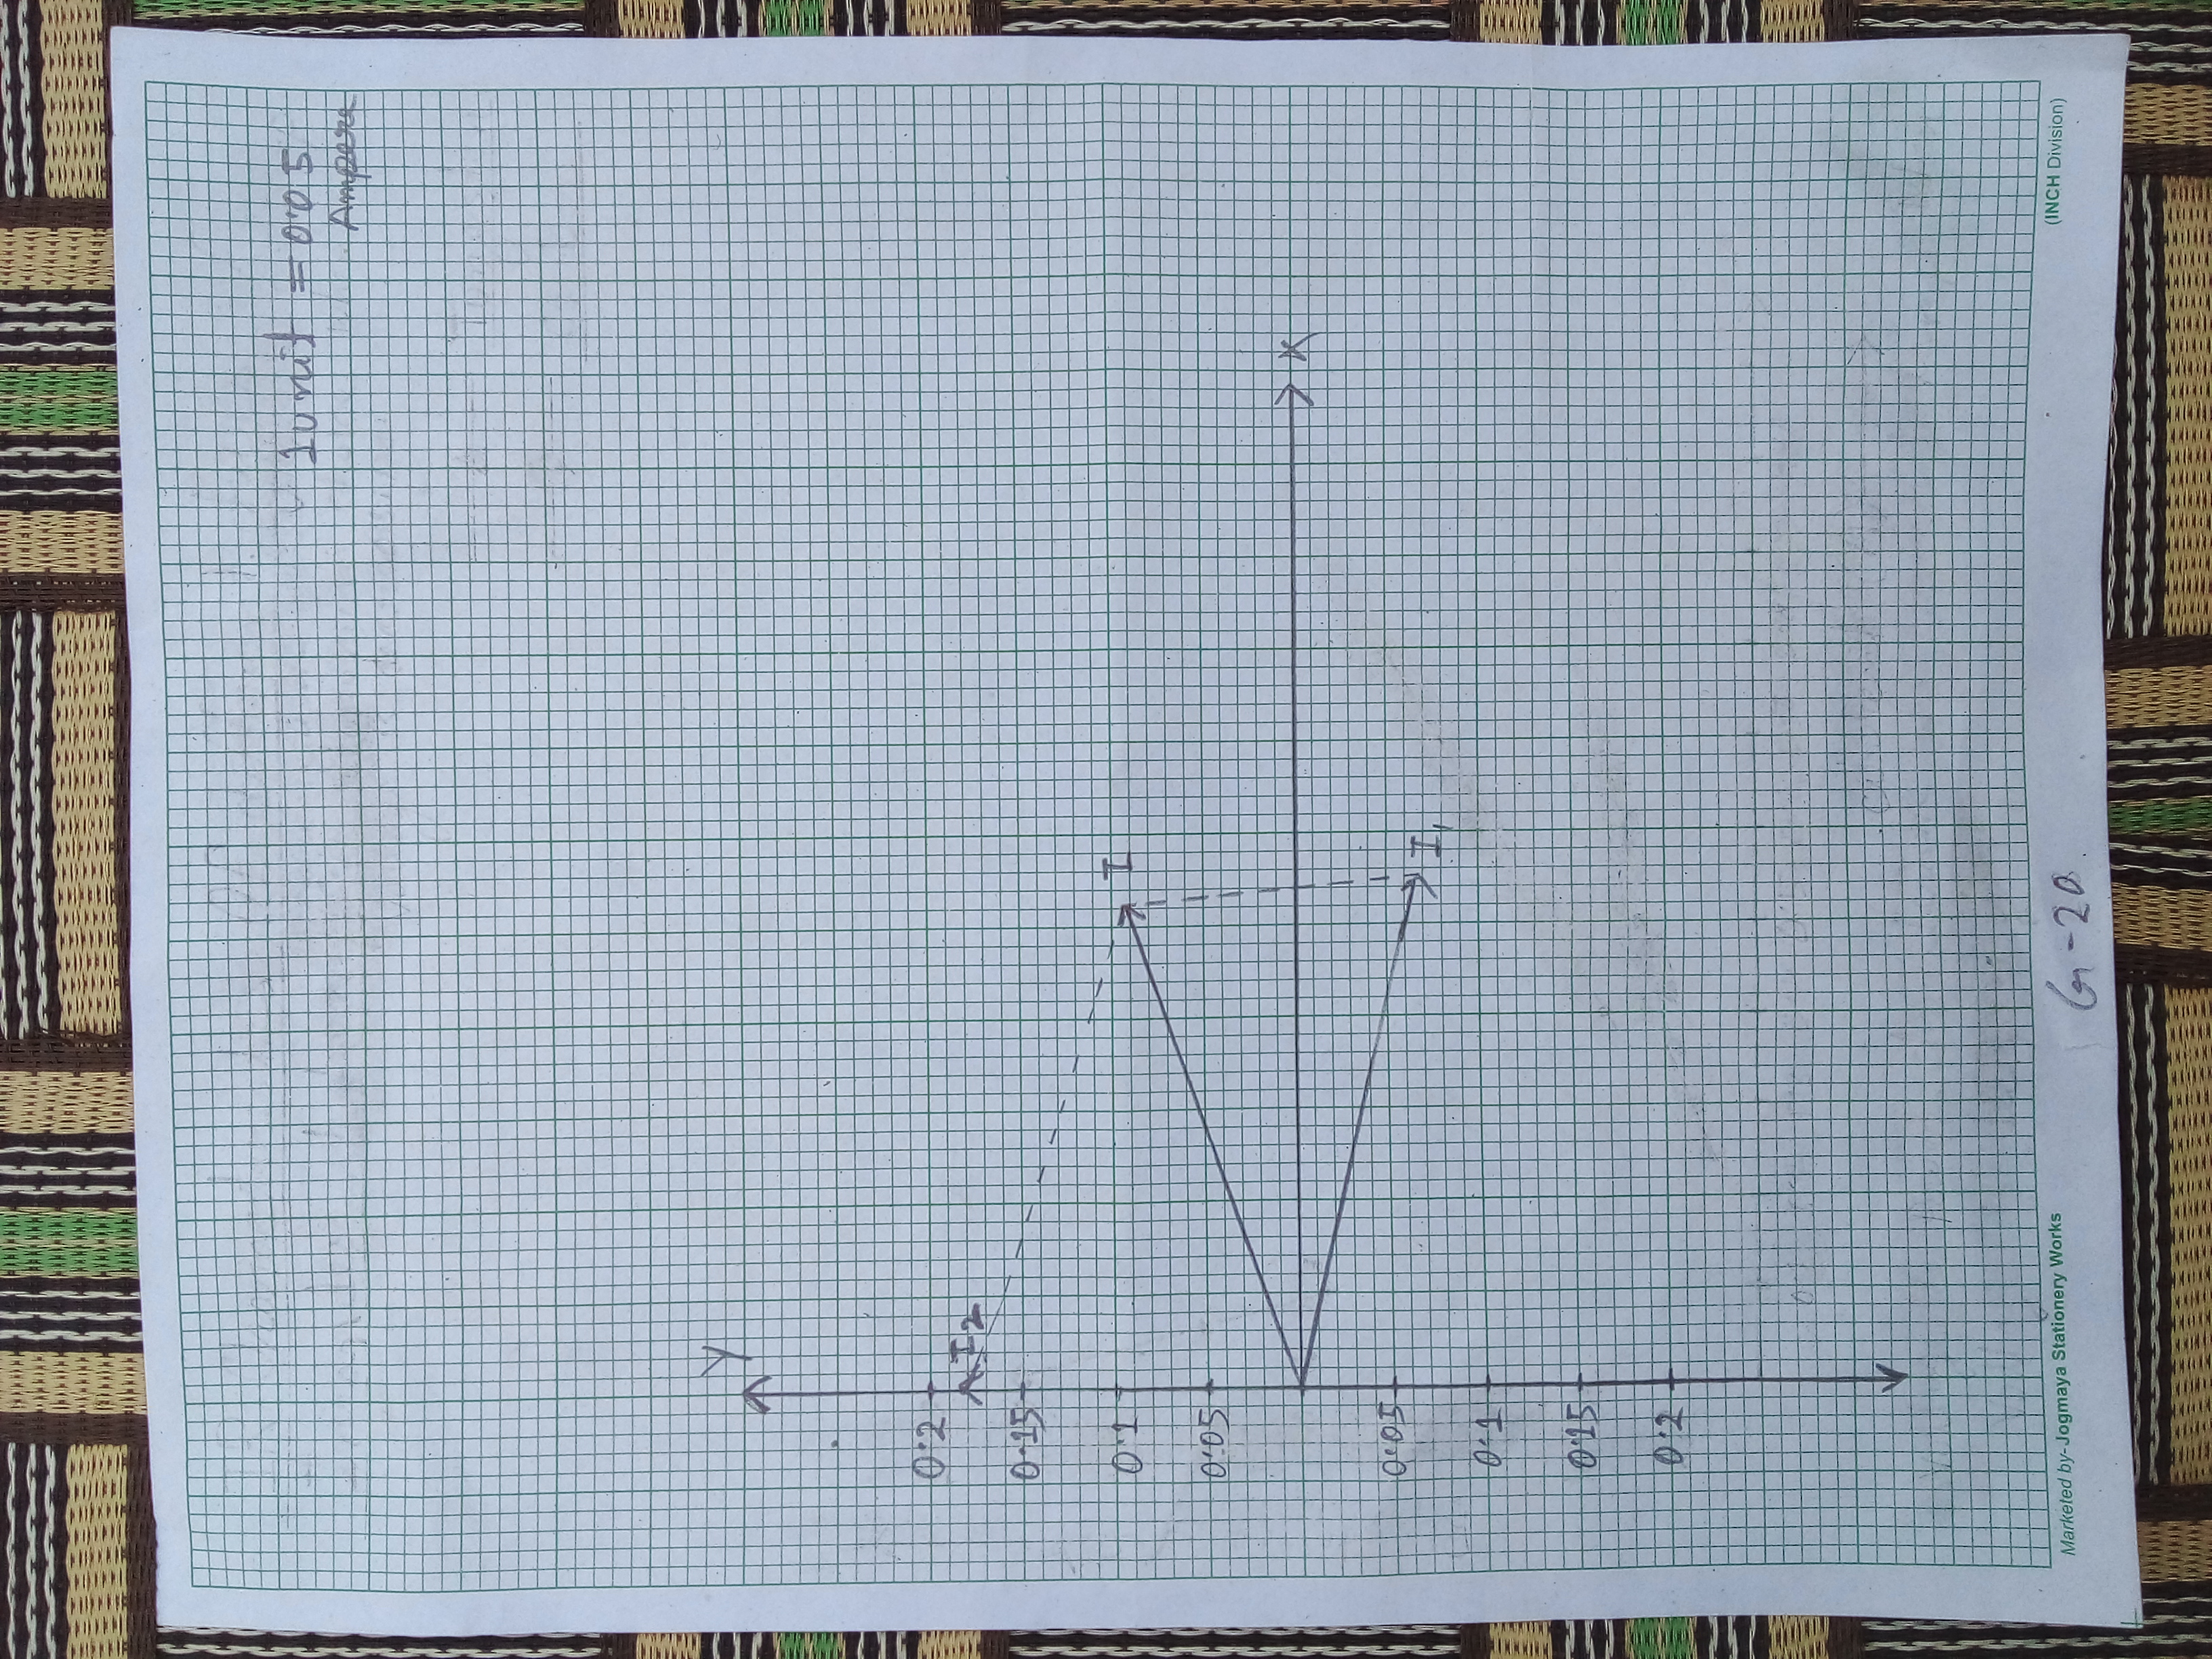 1 unit = 0.05
Ampere
Y
0.2
I2
0.15
0.1
I
0.05
X
0.05
I1
0.1
0.15
0.2
Marketed by- Jogmaya Stationery Works
(INCH Division)
G-20